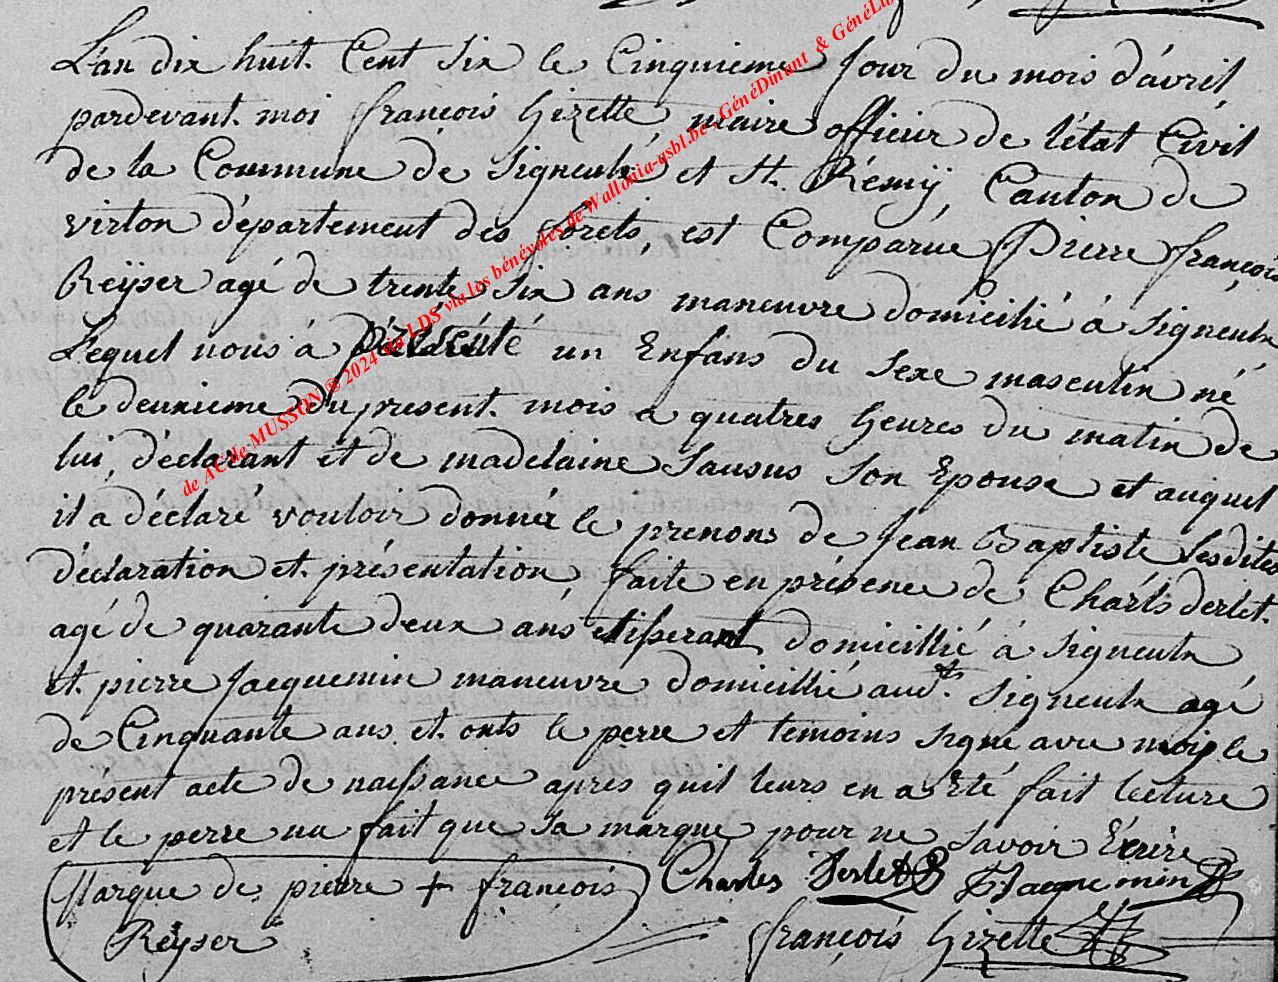 L'an dix huit. Cent six le Cinquieme Jour du mois d'avril
pardevant. moi françois Gizette, maire officier de l'état Civil
de la Commune de Signeulx et St. Rémij, Canton de
virton département des forets, est Comparue Pierre françois
Reÿser agé de trente Six ans maneuvre domicilié à Signeulx
Lequel nous à présenté un Enfans du sexe masculin né
le deuxieme du present. mois a quatres heures du matin de
lui, déclarant et de madelaine Sausus son Epouse et auquel
il a déclaré vouloir donnér le prenons de Jean Baptiste Lesdites
déclaration et. présentation, faite en présence de Charls derlet.
agé de quarante deux ans tisserant domicillié à Signeulx
et. pierre Jacquemin maneuvre domicillié aud.t Signeulx agé
de Cinquante ans et. onts le perre et temoins signé avec moi le
présent acte de naissance aprés quil leurs en a Eté fait lecture
et le perre na fait que sa marque pour ne savoir Écrire
Marque de pierre + françois
Reÿser
Charles Derlet
PJacquemin
françois Gizette
de AC de MUSSON ® 2024 via LDS via les bénévoles de Wallonia-asbl.be - GénéDinant & GénéLux